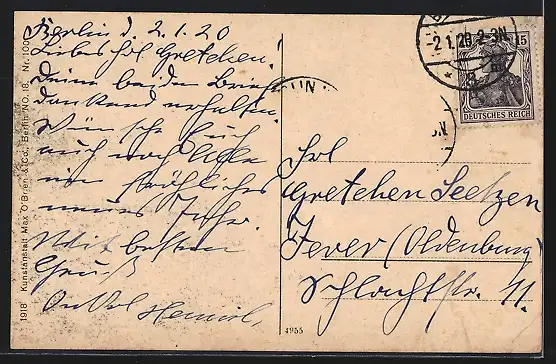 Berlin d. 2.1.20
Liebes Frl. Gretchen!
Deine beiden Briefe
dankend erhalten.
Wünsche Euch
auch noch Allen
ein fröhliches
neues Jahr.
Mit besten
Gruß
Onkel
1918 Kunstanstalt Max O'Brien & Co., Berlin NO. 18. Nr. 100
4955
-2.1.20.2-3N
15
DEUTSCHES REICH
Frl
Gretchen Seetzen
Jever (Oldenburg)
Schlachtstr. 11.